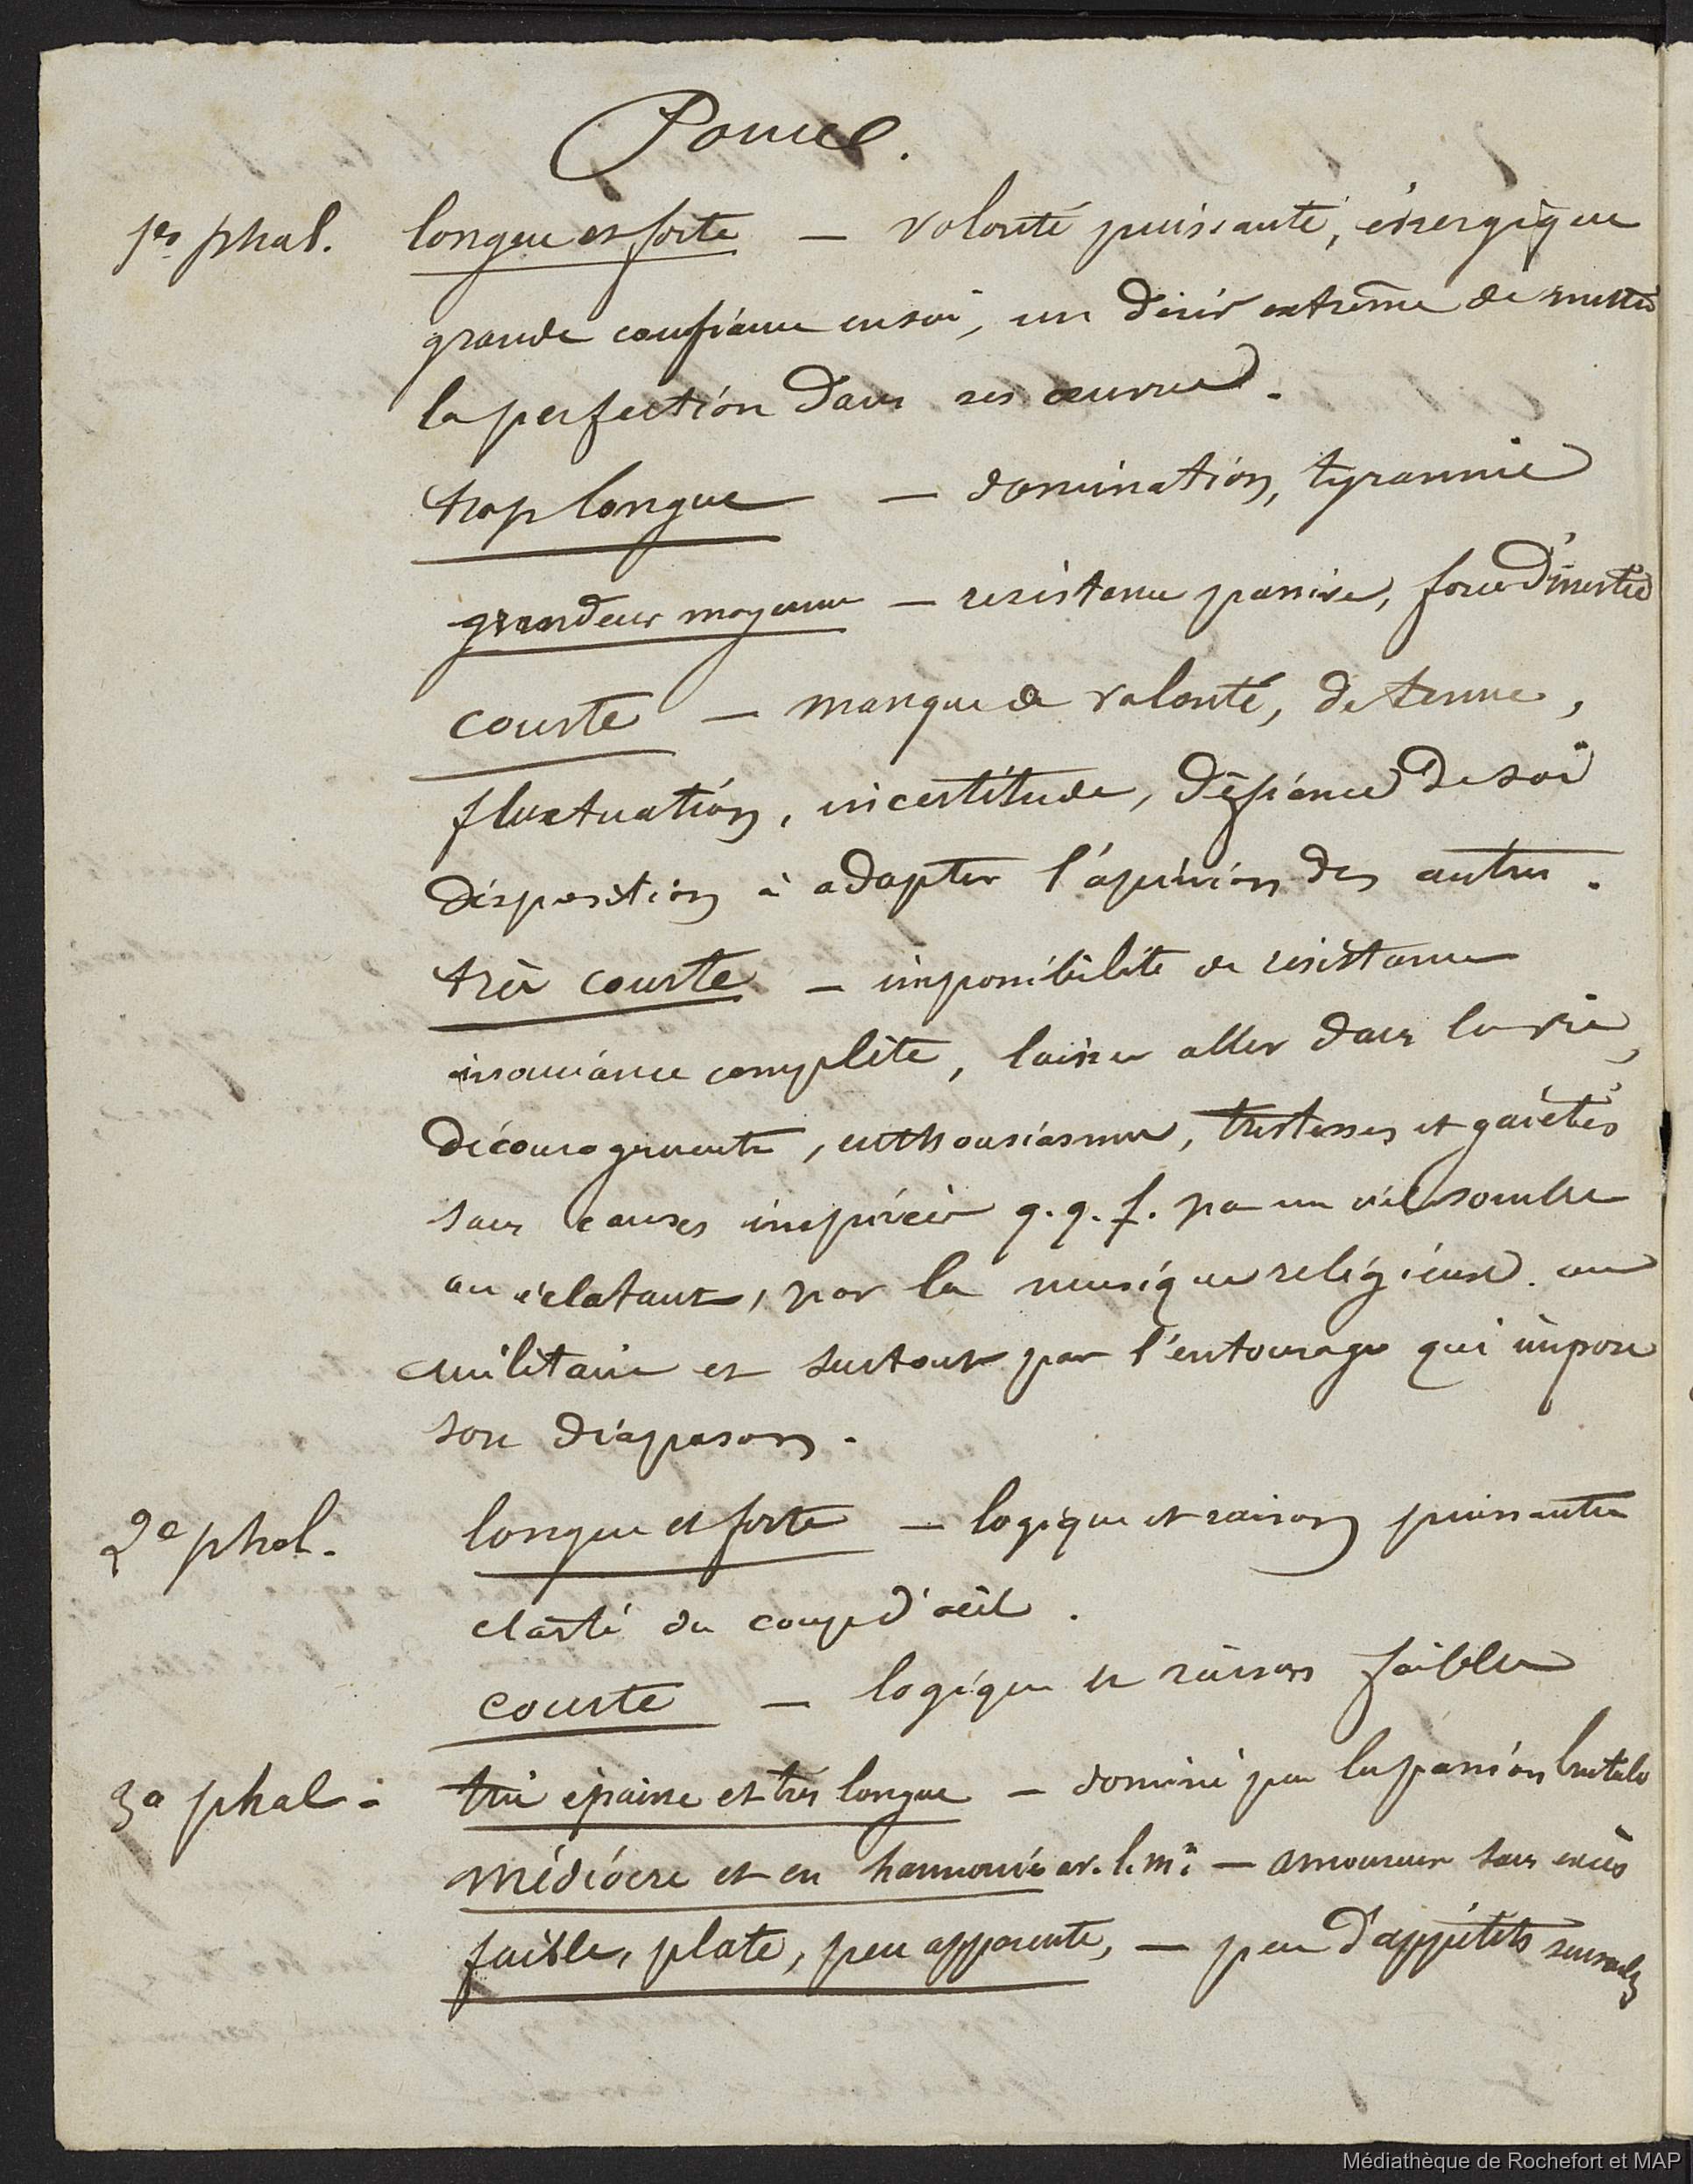 Pouce.
1er phal. longue et forte — volonté puissante, énergique
grande confiance en soi, un désir extrême de mettre
la perfection dans ses œuvres.
trop longue — domination, tyrannie
grandeur moyenne — resistance passive, force d'inertie
courte — manque de volonté, de tenue,
fluctuation, incertitude, défiance de soi
disposition à adopter l'opinion des autres.
très courte — impossibilité de résistance
insouciance complète, laisser aller dans la vie,
découragements, enthousiasmes, tristesses et gaietés
sans causes inspirées q.q.f. par un ciel sombre
ou éclatant, par la musique religieuse ou
militaire et surtout par l'entourage qui impose
son diapason.
2e phal. longue et forte — logique et raison puissantes
clarté du coup d'œil.
courte — logique et raison faibles
3e phal. très épaisse et très longue — dominé par la passion brutale
médiocre et en harmonie av. l. m. — amoureux sans excès
faible, plate, peu apparente, — peu d'appétits sensuels
Médiathèque de Rochefort et MAP